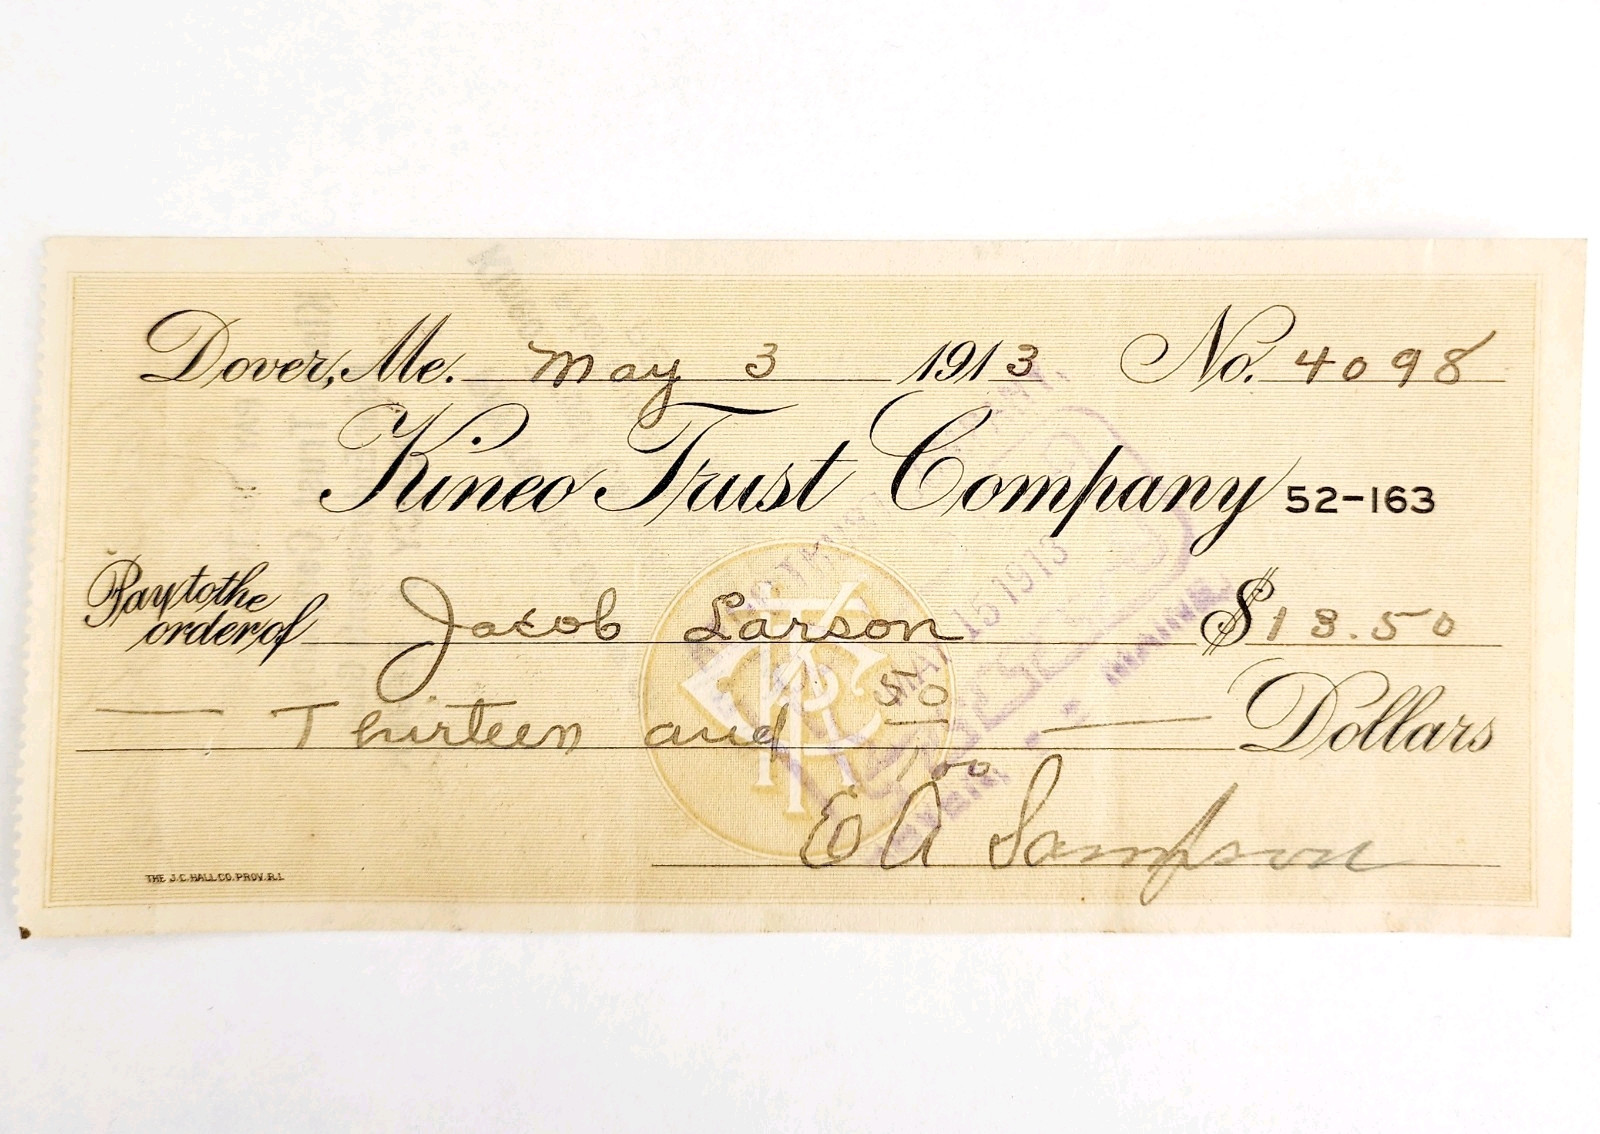 Dover, Me. May 3 1913 No. 4098
Kineo Trust Company 52-163
Pay to the
order of Jacob Larson $13.50
Thirteen and 50/100 Dollars
E A Sampson
MAY 15 1913
MAINE
THE J.C. HALL CO. PROV. R.I.